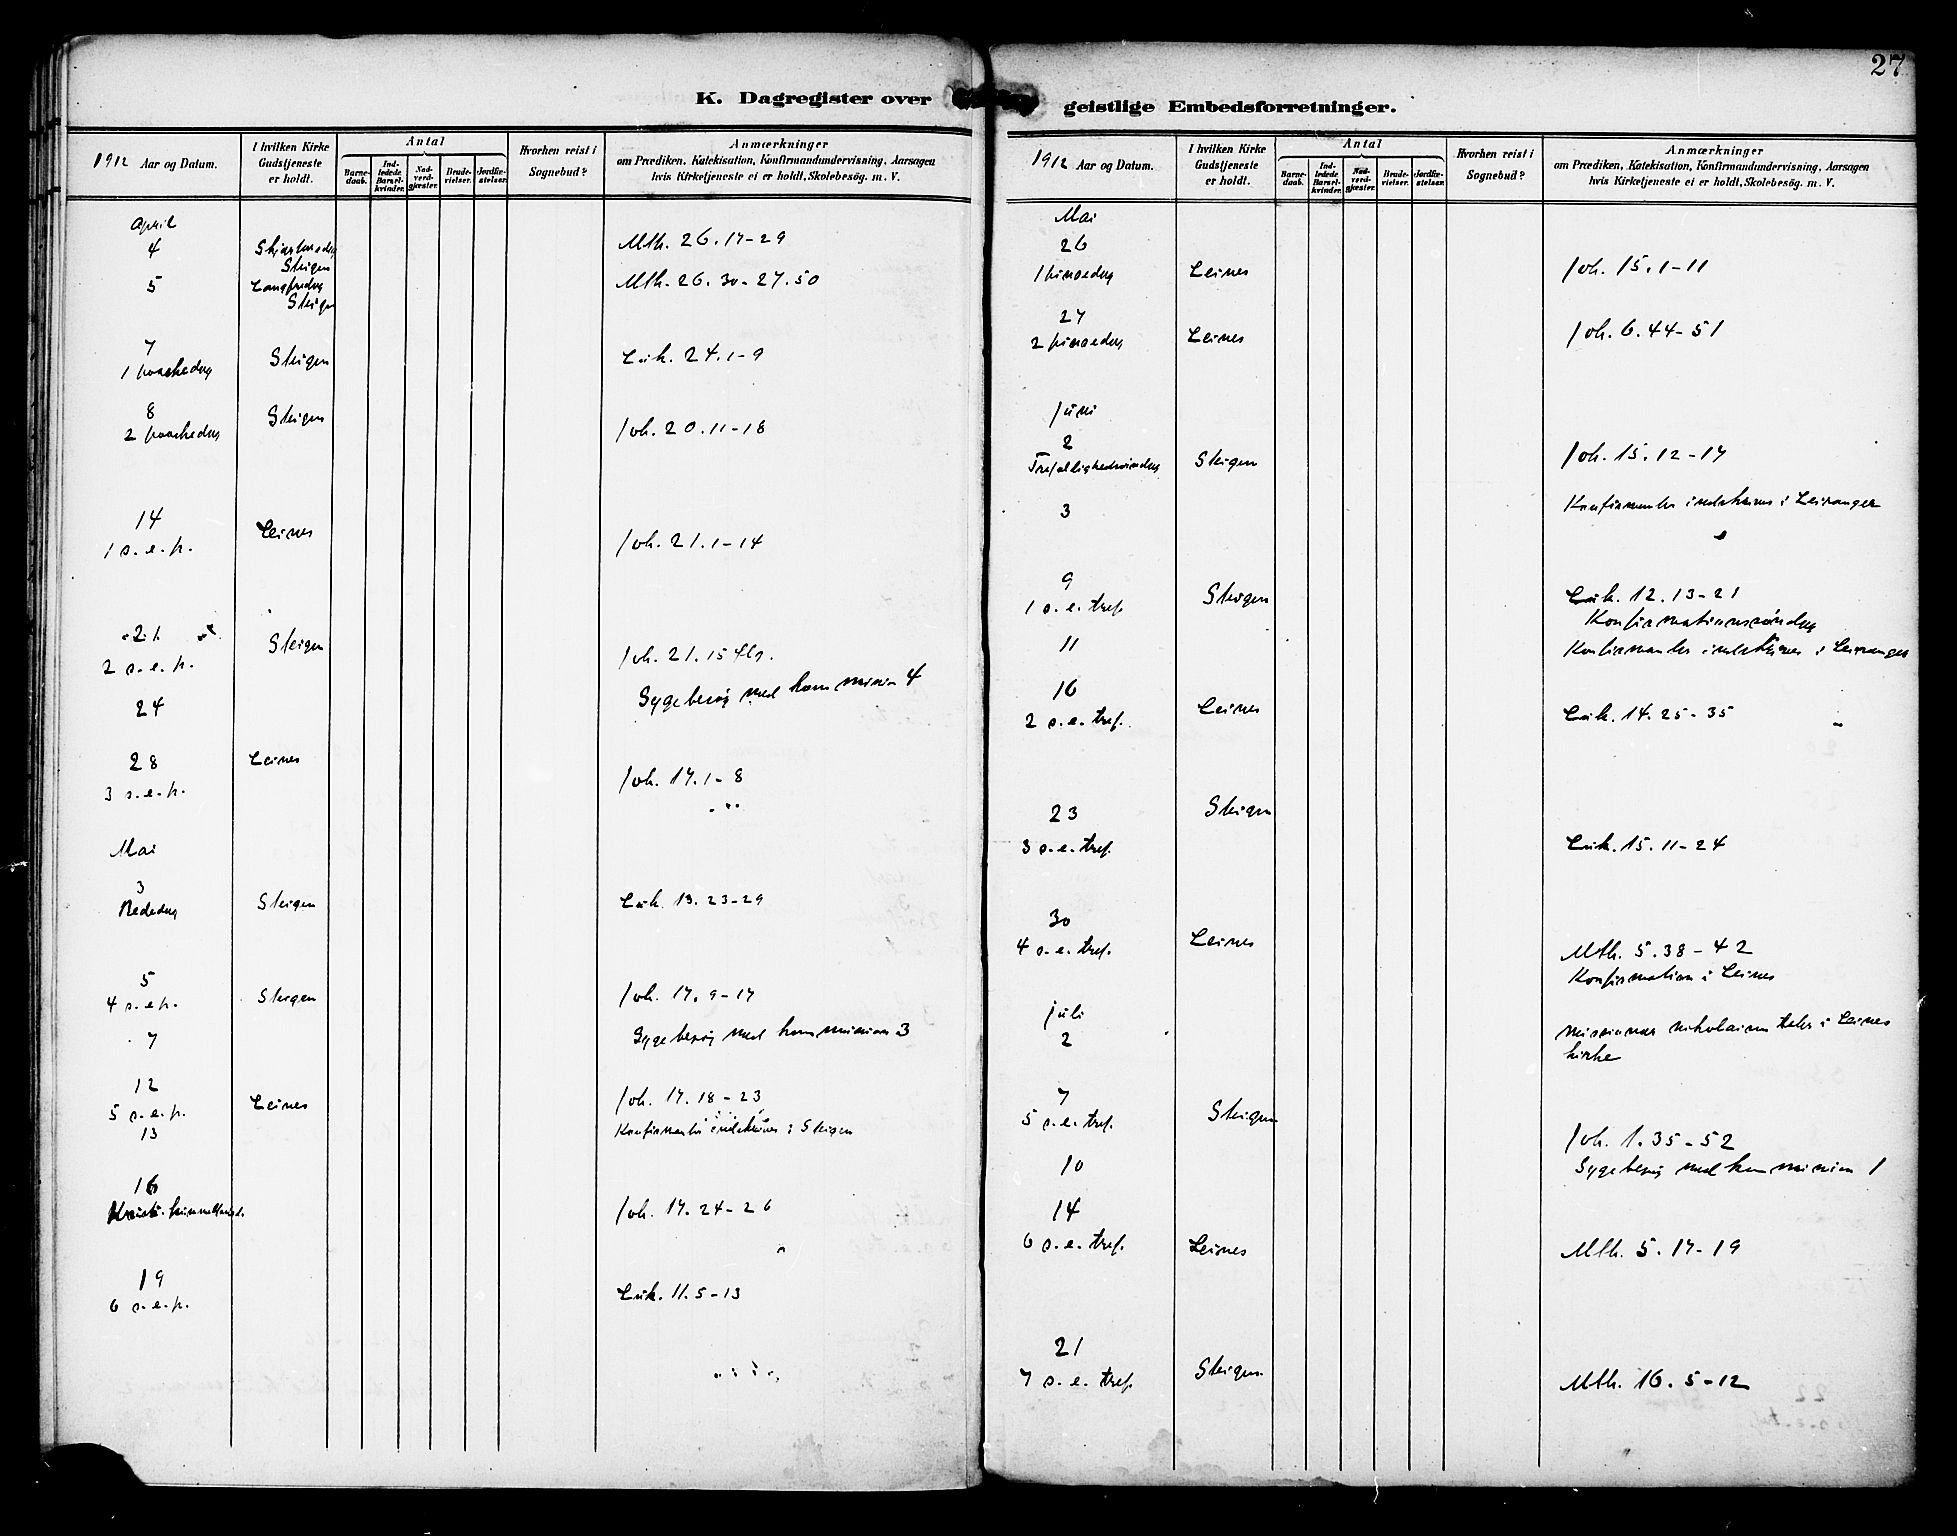 27
K. Dagregister over geistlige Embedsforretninger.
1912 Aar og Datum.
I hvilken Kirke Gudstjeneste er holdt.
Antal
Barnedaab.
Indledede Barselkvinder.
Nadverdgjæster.
Brudevielser.
Jordfæstelser.
Hvorhen reist i Sognebud?
Anmærkninger
om Prædiken, Katekisation, Konfirmandundervisning, Aarsagen
hvis Kirketjeneste ei er holdt, Skolebesög. m. V.
April
4 Skjærtorsdag Steigen Mth. 26. 17-29
5 Langfredag Steigen Mth. 26. 30-27. 50
7
1 paaskedag Steigen Luk. 24. 1-9
8
2 paaskedag Steigen Joh. 20. 11-18
14
1 s. e. p. Leines Joh. 21. 1-14
21
2 s. e. p. Steigen Joh. 21. 15 flg.
24 Sygebesøg med kommunion 4
28
3 s. e. p. Leines Joh. 17. 1-8
Mai
3
Bededag Steigen Luk. 13. 23-29
5
4 s. e. p. Steigen Joh. 17. 9-17
7 Sygebesøg med kommunion 3
12
5 s. e. p. Leines Joh. 17. 18-23
13 Konfirmanter indskrives i Steigen
16
Kristi himmelfartsd. Joh. 17. 24-26
19
6 s. e. p. Luk. 11. 5-13
1912 Aar og Datum.
I hvilken Kirke Gudstjeneste er holdt.
Antal
Barnedaab.
Indledede Barselkvinder.
Nadverdgjæster.
Brudevielser.
Jordfæstelser.
Hvorhen reist i Sognebud?
Anmærkninger
om Prædiken, Katekisation, Konfirmandundervisning, Aarsagen
hvis Kirketjeneste ei er holdt, Skolebesög. m. V.
Mai
26
1 pinsedag Leines Joh. 15. 1-11
27
2 pinsedag Leines Joh. 6. 44-51
Juni
2
Trefoldighedssøndag Steigen Joh. 15. 12-17
3 Konfirmanter indskrives i Leiranger
9
1 s. e. tref. Steigen Luk. 12. 13-21
Konfirmationssøndag
11 Konfirmanter indskrives i Leiranger
16
2 s. e. tref. Leines Luk. 14. 25-35
23
3 s. e. tref. Steigen Luk. 15. 11-24
30
4 s. e. tref. Leines Mth. 5. 38-42
Konfirmation i Leines
Juli
2 Missionær Nikolaisen taler i Leines
kirke
7
5 s. e. tref. Steigen Joh. 1. 35-52
10 Sygebesøg med kommunion 1
14
6 s. e. tref. Leines Mth. 5. 17-19
21
7 s. e. tref. Steigen Mth. 16. 5-12